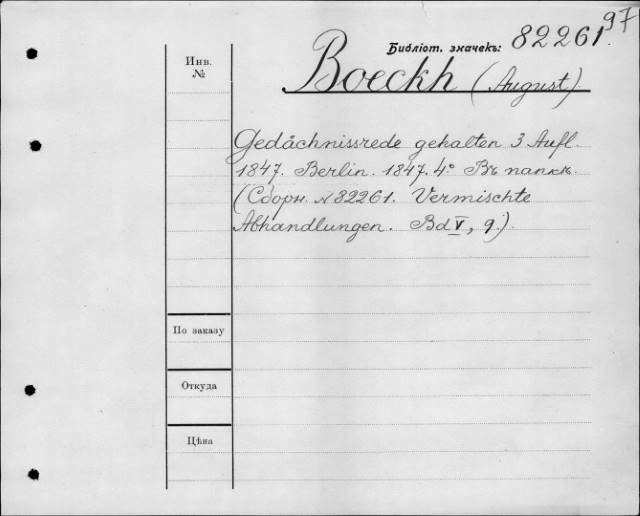 97
Библіот. значекъ: 82261.
Инв. №
Boeckh (August).
Gedächnissrede gehalten 3 Aufl.
1847. Berlin. 1847. 4° Въ папкѣ.
(Сборн. № 82261. Vermischte
Abhandlungen. Bd V, 9.)
По заказу
Откуда
Цѣна